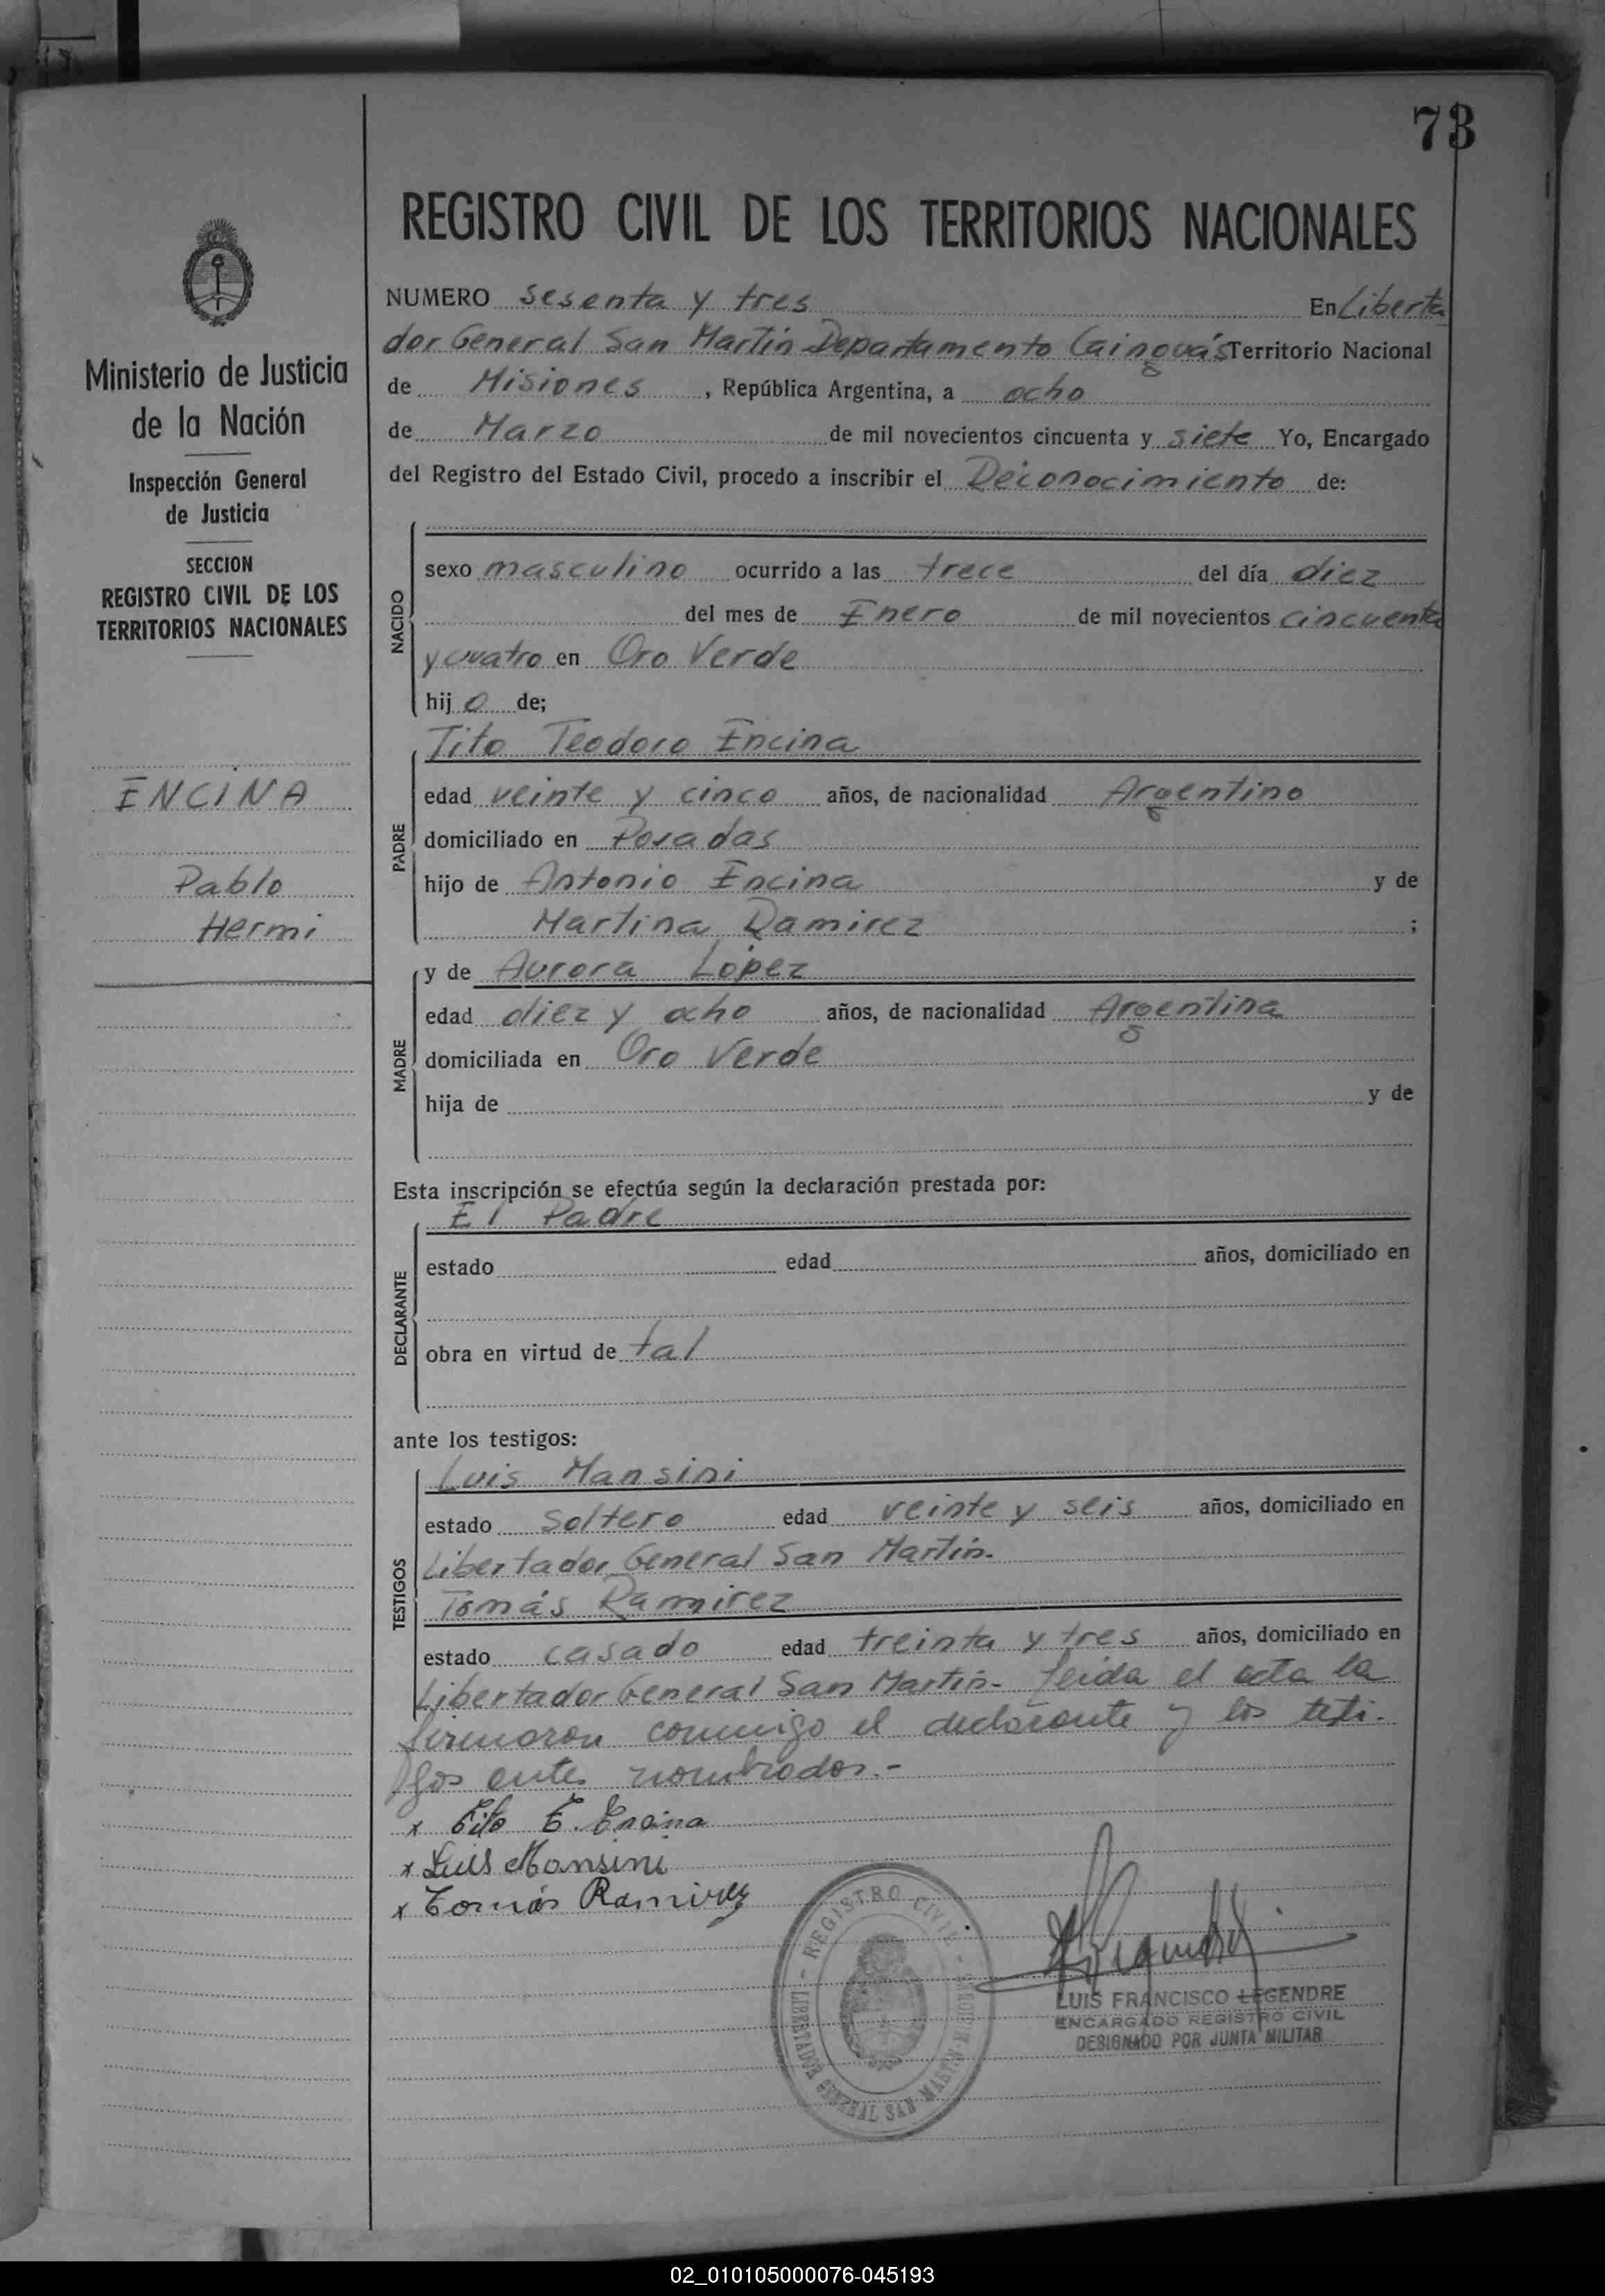 73
REGISTRO CIVIL DE LOS TERRITORIOS NACIONALES
NUMERO sesenta y tres En Liberta
dor General San Martín Departamento Cainguás Territorio Nacional
de Misiones, República Argentina, a ocho
de Marzo de mil novecientos cincuenta y siete Yo, Encargado
del Registro del Estado Civil, procedo a inscribir el Reconocimiento de:
Ministerio de Justicia
de la Nación
Inspección General
de Justicia
SECCION
REGISTRO CIVIL DE LOS
TERRITORIOS NACIONALES
ENCINA
Pablo
Hermi
NACIDO
sexo masculino ocurrido a las trece del día diez
del mes de Enero de mil novecientos cincuenta
y cuatro en Oro Verde
hijo de;
PADRE
Tito Teodoro Encina
edad veinte y cinco años, de nacionalidad Argentino
domiciliado en Posadas
hijo de Antonio Encina y de
Martina Ramirez ;
MADRE
y de Aurora López
edad diez y ocho años, de nacionalidad Argentina
domiciliada en Oro Verde
hija de y de
Esta inscripción se efectúa según la declaración prestada por:
DECLARANTE
El Padre
estado edad años, domiciliado en
obra en virtud de tal
ante los testigos:
TESTIGOS
Luis Mansini
estado Soltero edad veinte y seis años, domiciliado en
Libertador General San Martín.
Tomás Ramirez
estado casado edad treinta y tres años, domiciliado en
Libertador General San Martín- Leida el acta la
firmaron conmigo el declarante y los testi-
gos antes nombrados.-
x Tito T. Encina
x Luis Mansini
x Tomás Ramirez
- REGISTRO CIVIL -
LIBERTADOR GENERAL SAN MARTIN
LUIS FRANCISCO LEGENDRE
ENCARGADO REGISTRO CIVIL
DESIGNADO POR JUNTA MILITAR
02_010105000076-045193